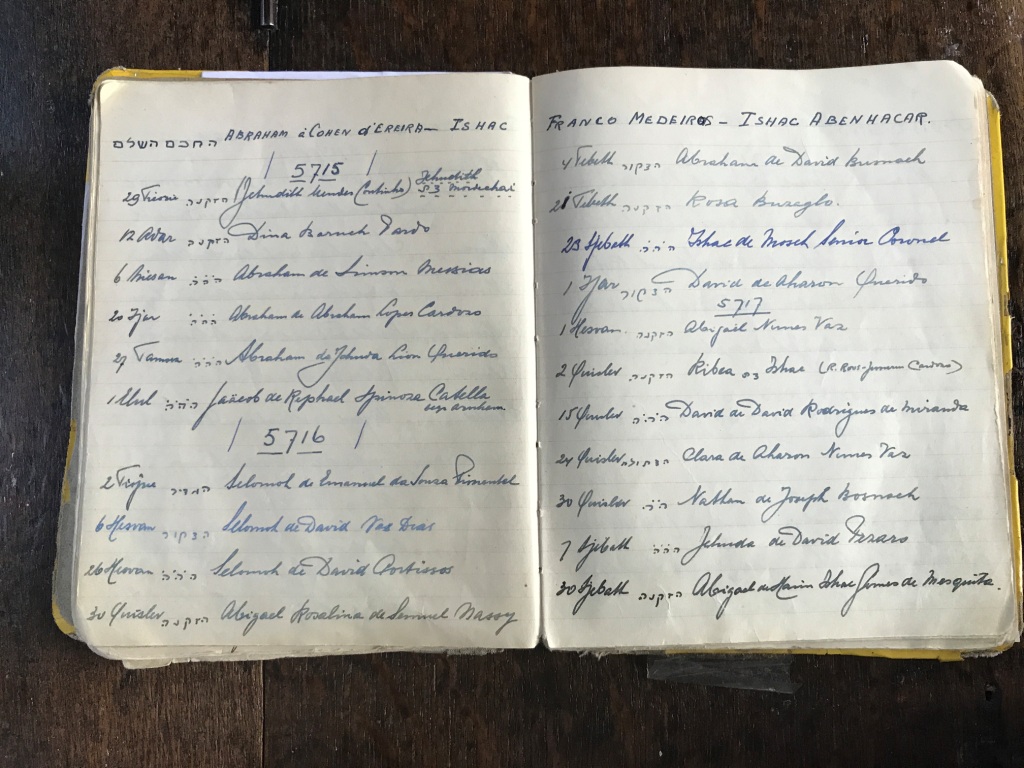 החכם השלם ABRAHAM à COHEN d'EREIRA — ISHAC
| 5715 |
(Jehudith Mendes Coutinho) Jehudith
הזקנה Mordechai
12 Adar הזקנה Dina Baruch Pardo
6 Nissan הה״ה Abraham de Simson Messias
20 Ijar הה״ה Abraham de Abraham Lopes Cardozo
27 Tamuz הה״ה Abraham de Jehuda Lion Querido
1 Elul הה״ה Jaäcob de Raphael Spinosa Catella
| 5716 |
2 Selomoh de Emanuel da Souza Pimentel
6 Hesvan הצקור Selomoh de David Vaz Dias
26 Hesvan הה״ה Selomoh de David
30 Quislev הזקנה Abigael Rosalina de Semuel Nassy
FRANCO MEDEIROS — ISHAC ABENHACAR.
4 Tebeth הצקור Abraham de David
21 Tebeth הזקנה Rosa Bureglo.
23 Sjebath הה״ה Ishac de Mosch Senior Coronel
1 Ijar הצקור David de Aharon Querido
5717
1 Hesvan. הזקנה Abigaël Nunes Vaz
2 Quislev הזקנה Ribca Ishac
15 Quislev הה״ה David de David Rodrigues de Miranda
24 Quislev Clara de Aharon Nunes Vaz
30 Quislev הה״ה Nathan de Joseph Bosnach
7 Sjebath הה״ה Jehuda de David
30 Sjebath הזקנה Abigael de Ishac Gomes de Mesquita.